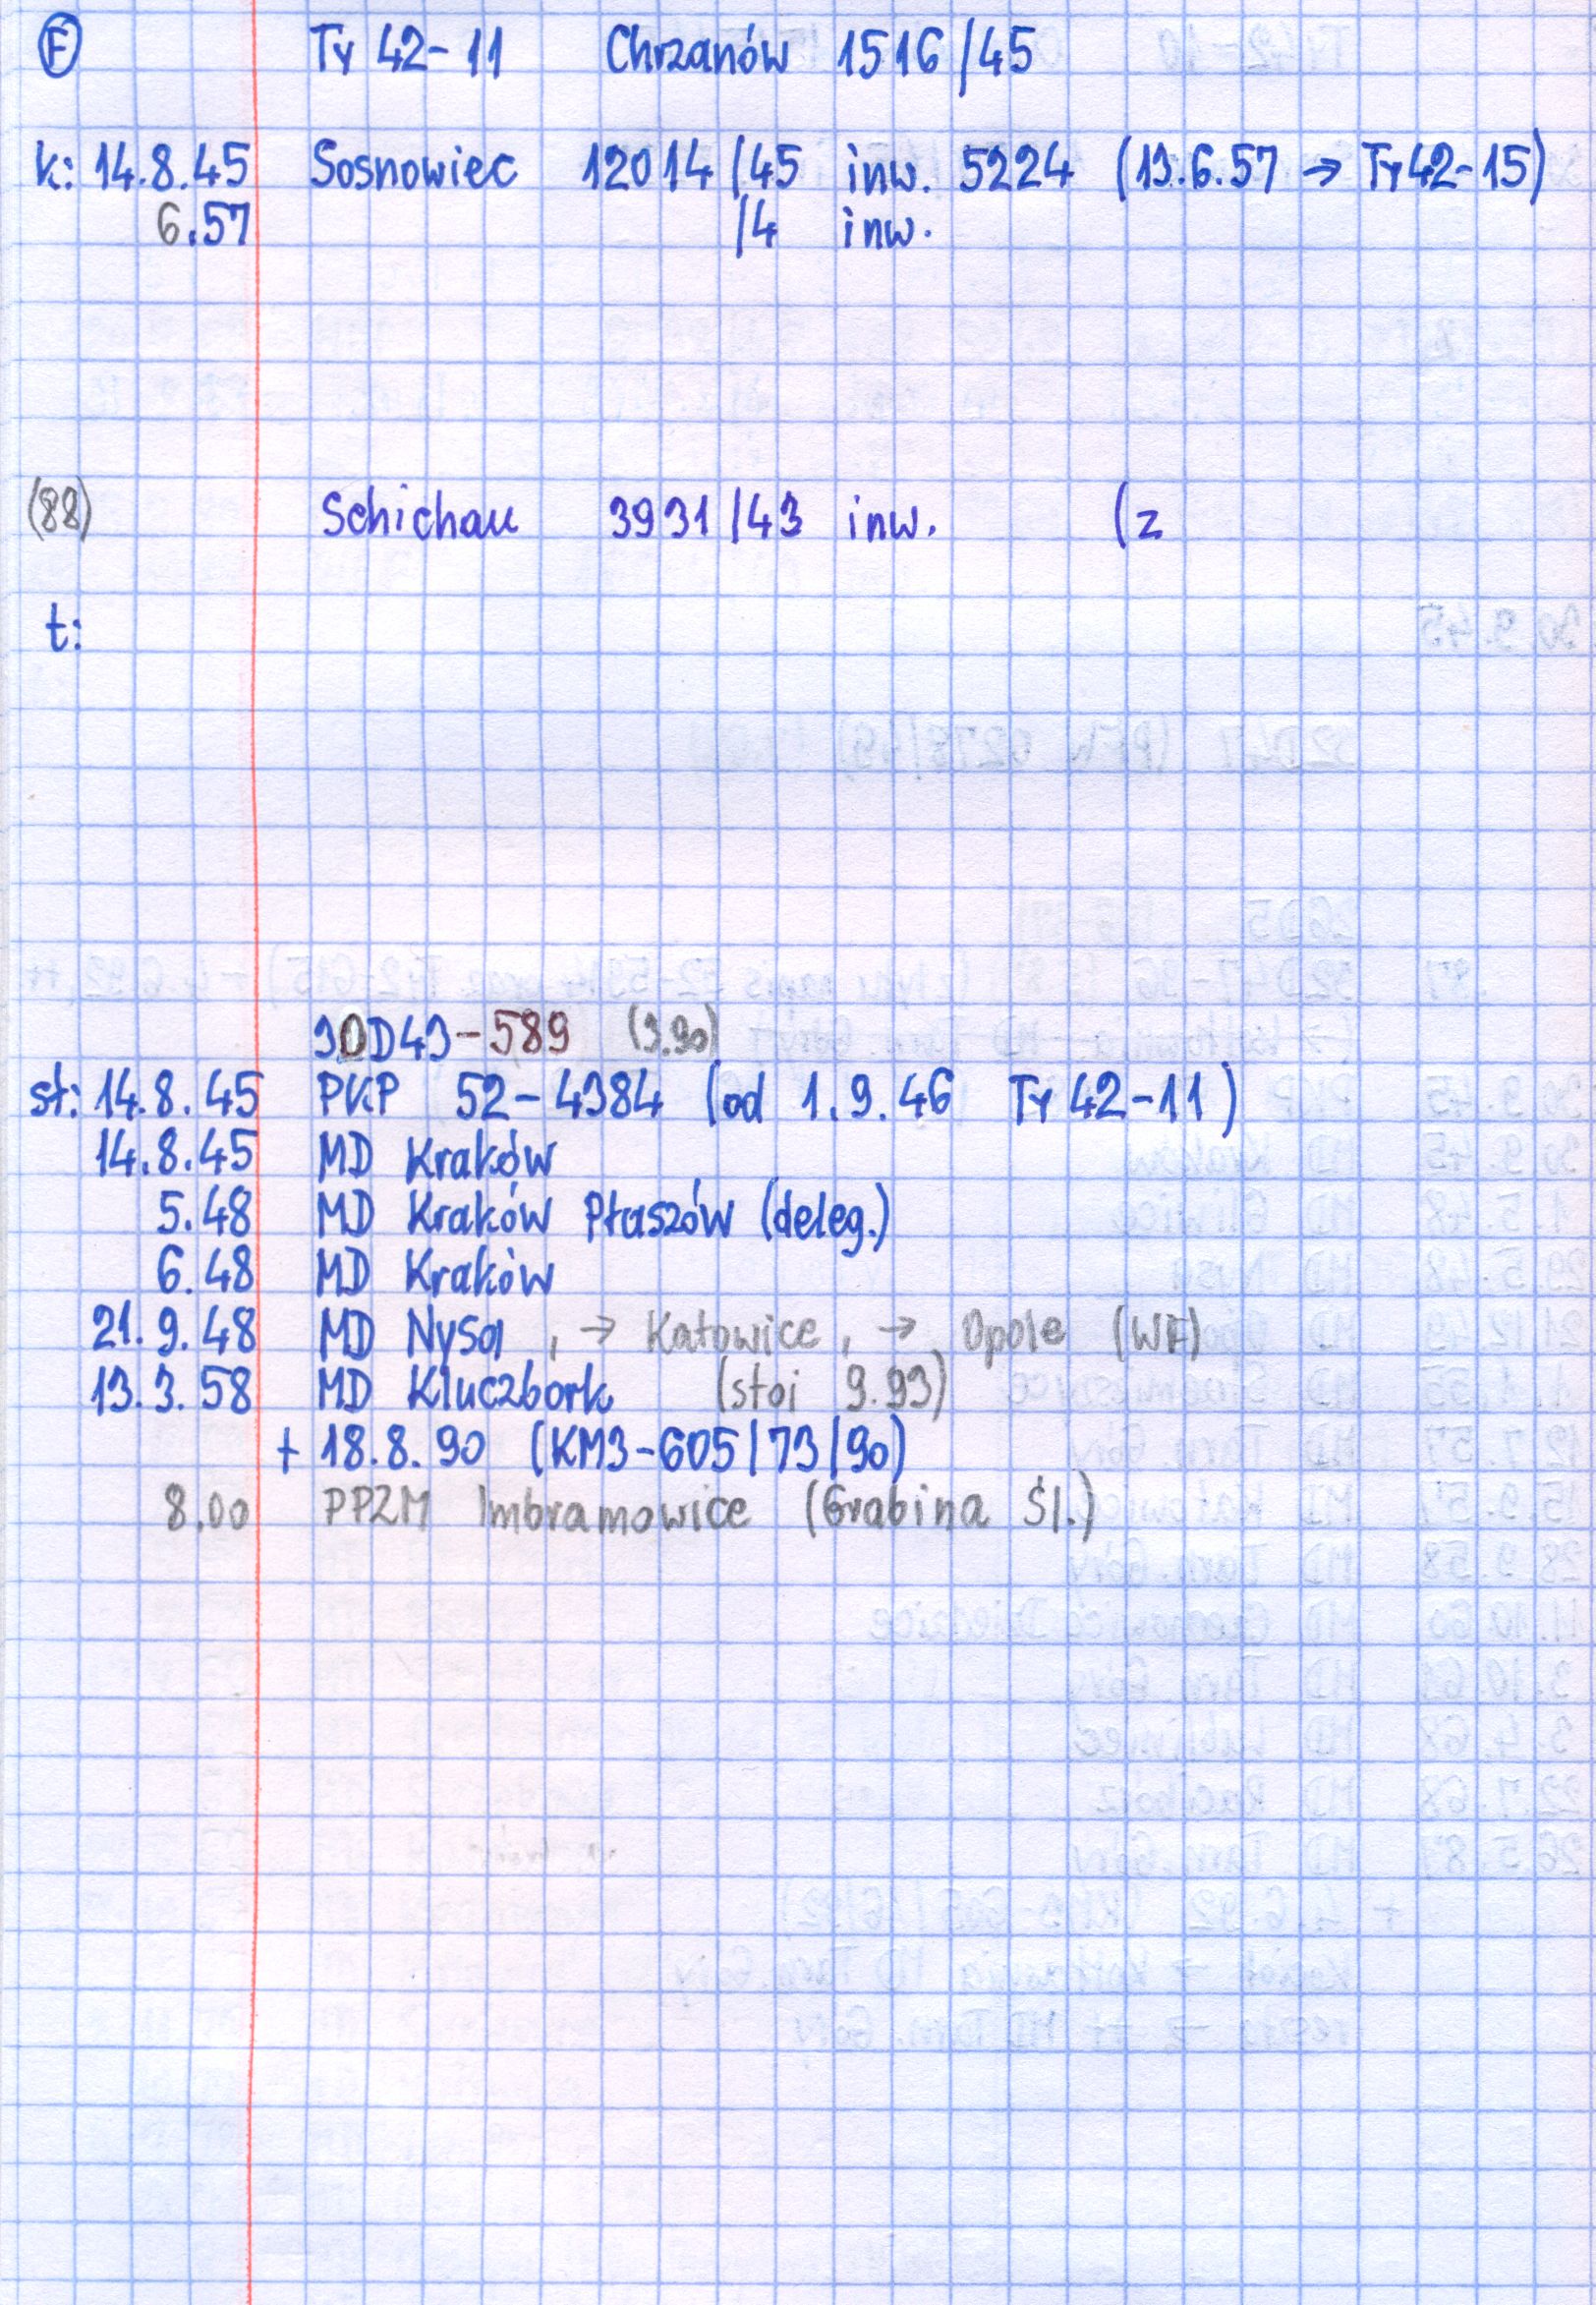 F Ty 42-11 Chrzanów 1516/45
k: 14.8.45 Sosnowiec 12014/45 inw. 5224 (13.6.57 → Ty42-15)
6.57 /4 inw.
(88) Schichau 3931/43 inw. (z
t:
30D43-589 (3.90)
st: 14.8.45 PKP 52-4384 (od 1.9.46 Ty 42-11)
14.8.45 MD Kraków
5.48 MD Kraków Płaszów (deleg.)
6.48 MD Kraków
21.9.48 MD Nysa, → Katowice, → Opole (WF)
13.3.58 MD Kluczbork (stoi 9.93)
+ 18.8.90 (KM3-605/73/90)
8.00 PPZM Imbramowice (Grabina Śl.)